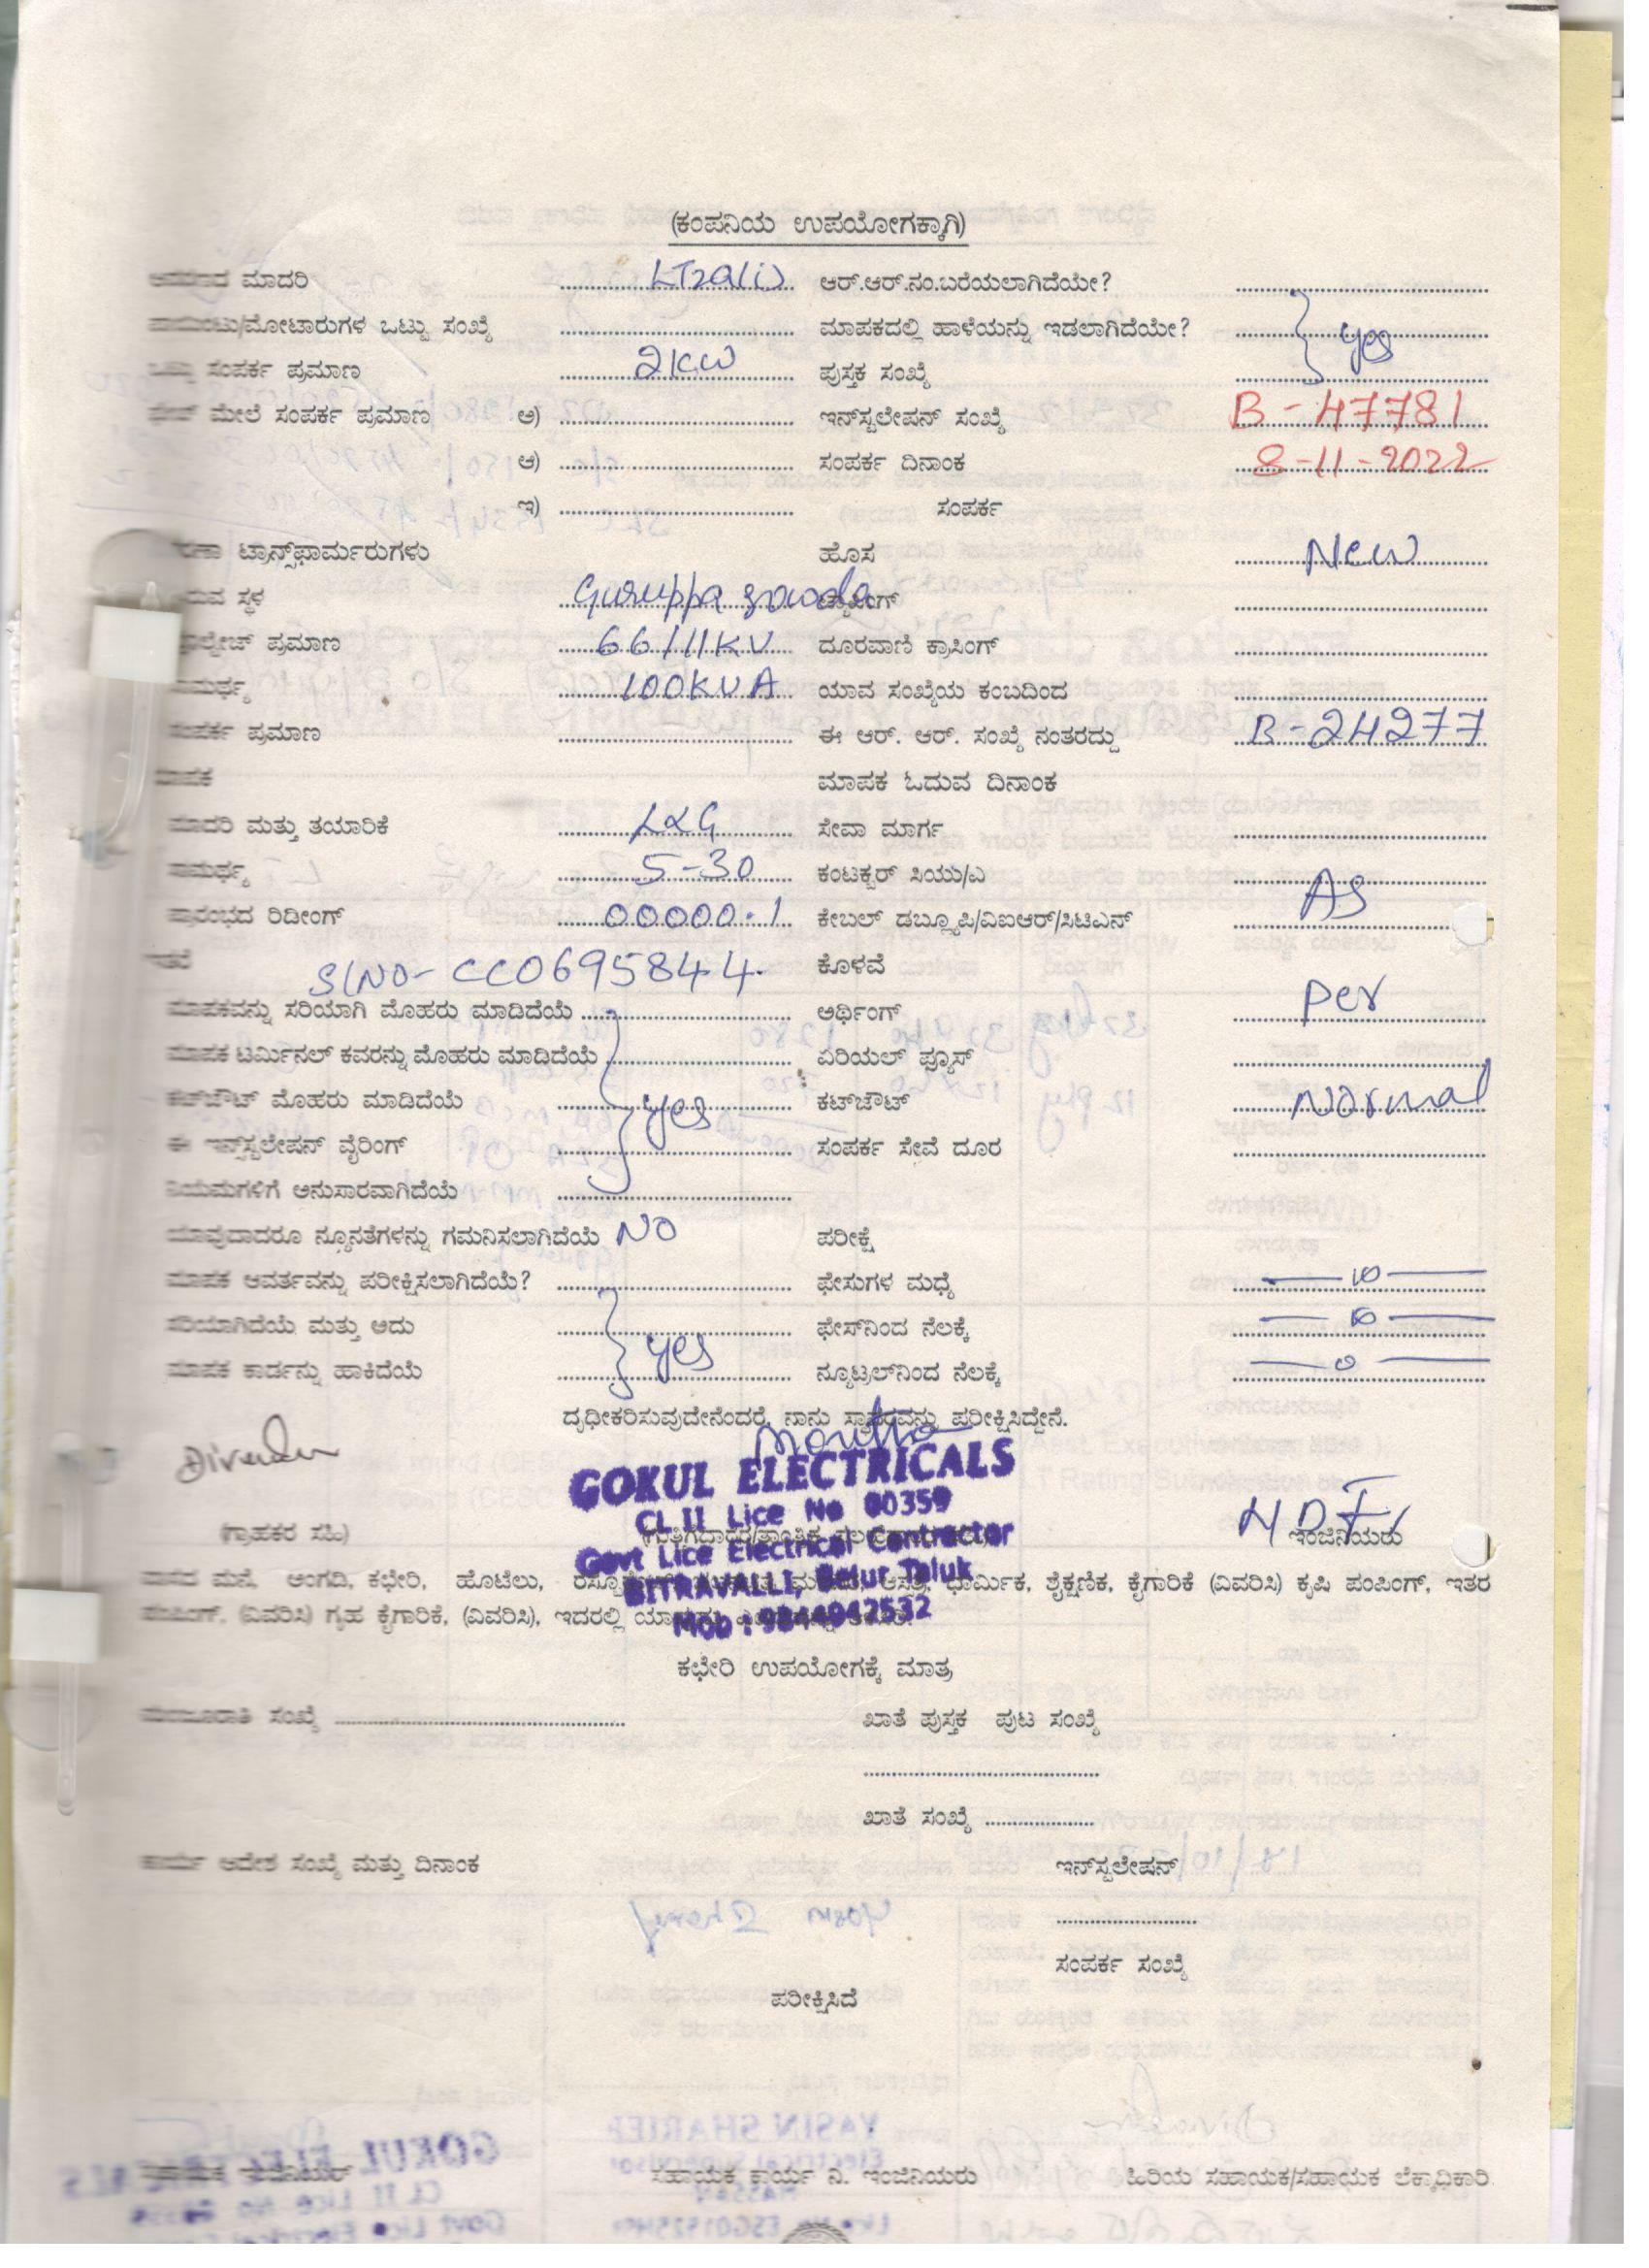 (ಕಂಪನಿಯ ಉಪಯೋಗಕ್ಕಾಗಿ)
ಮಾದರಿ LT2a(i) ಆರ್.ಆರ್.ನಂ.ಬರೆಯಲಾಗಿದೆಯೇ?
ಪಾಯಿಂಟು/ಮೋಟಾರುಗಳ ಒಟ್ಟು ಸಂಖ್ಯೆ ಮಾಪಕದಲ್ಲಿ ಹಾಳೆಯನ್ನು ಇಡಲಾಗಿದೆಯೇ? yes
ಒಟ್ಟು ಸಂಪರ್ಕ ಪ್ರಮಾಣ 2KW ಪುಸ್ತಕ ಸಂಖ್ಯೆ
ಮೇಲೆ ಸಂಪರ್ಕ ಪ್ರಮಾಣ ಅ) ಇನ್‌ಸ್ಟಲೇಷನ್ ಸಂಖ್ಯೆ B-47781
ಆ) ಸಂಪರ್ಕ ದಿನಾಂಕ 8-11-2022
ಇ) ಸಂಪರ್ಕ
ಟ್ರಾನ್ಸ್‌ಫಾರ್ಮರುಗಳು ಹೊಸ New
ಸ್ಥಳ Guruppa gowda
ಪ್ರಮಾಣ 66/11KV ದೂರವಾಣಿ ಕ್ರಾಸಿಂಗ್
100KVA ಯಾವ ಸಂಖ್ಯೆಯ ಕಂಬದಿಂದ
ಸಂಪರ್ಕ ಪ್ರಮಾಣ ಈ ಆರ್. ಆರ್. ಸಂಖ್ಯೆ ನಂತರದ್ದು B-24277
ಮಾಪಕ ಮಾಪಕ ಓದುವ ದಿನಾಂಕ
ಮಾದರಿ ಮತ್ತು ತಯಾರಿಕೆ L&G ಸೇವಾ ಮಾರ್ಗ
ಸಾಮರ್ಥ್ಯ 5-30 ಕಂಟಕ್ಟರ್ ಸಿಯು/ಎ As
ಪ್ರಾರಂಭದ ರಿಡೀಂಗ್ 00000.1 ಕೇಬಲ್ ಡಬ್ಲ್ಯೂಪಿ/ವಿಐಆರ್/ಸಿಟಿಎನ್
ಇತರೆ Sl No- CC0695844. ಕೊಳವೆ
ಮಾಪಕವನ್ನು ಸರಿಯಾಗಿ ಮೊಹರು ಮಾಡಿದೆಯೆ ಅರ್ಥಿಂಗ್ per
ಮಾಪಕ ಟರ್ಮಿನಲ್ ಕವರನ್ನು ಮೊಹರು ಮಾಡಿದೆಯೆ ಏರಿಯಲ್ ಫ್ಯೂಸ್
ಕಟ್‌ಔಟ್ ಮೊಹರು ಮಾಡಿದೆಯೆ yes ಕಟ್‌ಔಟ್ Normal
ಈ ಇನ್‌ಸ್ಟಲೇಷನ್ ವೈರಿಂಗ್ ಸಂಪರ್ಕ ಸೇವೆ ದೂರ
ನಿಯಮಗಳಿಗೆ ಅನುಸಾರವಾಗಿದೆಯೆ
ಯಾವುದಾದರೂ ನ್ಯೂನತೆಗಳನ್ನು ಗಮನಿಸಲಾಗಿದೆಯೆ NO ಪರೀಕ್ಷೆ
ಮಾಪಕ ಆವರ್ತವನ್ನು ಪರೀಕ್ಷಿಸಲಾಗಿದೆಯೆ? ಫೇಸುಗಳ ಮಧ್ಯೆ
ಸರಿಯಾಗಿದೆಯೆ ಮತ್ತು ಅದು yes ಫೇಸ್‌ನಿಂದ ನೆಲಕ್ಕೆ
ಮಾಪಕ ಕಾರ್ಡನ್ನು ಹಾಕಿದೆಯೆ ನ್ಯೂಟ್ರಲ್‌ನಿಂದ ನೆಲಕ್ಕೆ
ದೃಢೀಕರಿಸುವುದೇನೆಂದರೆ, ನಾನು ಸ್ಥಾವರವನ್ನು ಪರೀಕ್ಷಿಸಿದ್ದೇನೆ.
GOKUL ELECTRICALS
CL II Lice No 00359
(ಗ್ರಾಹಕರ ಸಹಿ) ಇಂಜಿನಿಯರು
Govt Lice Electrical Contractor
BITRAVALLI, Belur Taluk
Mob : 9844942532
ವಾಸದ ಮನೆ, ಅಂಗಡಿ, ಕಛೇರಿ, ಹೊಟೆಲು, ಆಸ್ಪತ್ರೆ, ಧಾರ್ಮಿಕ, ಶೈಕ್ಷಣಿಕ, ಕೈಗಾರಿಕೆ (ವಿವರಿಸಿ) ಕೃಷಿ ಪಂಪಿಂಗ್, ಇತರ
ಪಂಪಿಂಗ್, (ವಿವರಿಸಿ) ಗೃಹ ಕೈಗಾರಿಕೆ, (ವಿವರಿಸಿ), ಇದರಲ್ಲಿ
ಕಛೇರಿ ಉಪಯೋಗಕ್ಕೆ ಮಾತ್ರ
ಮಂಜೂರಾತಿ ಸಂಖ್ಯೆ ಖಾತೆ ಪುಸ್ತಕ ಪುಟ ಸಂಖ್ಯೆ
ಖಾತೆ ಸಂಖ್ಯೆ
ಕಾರ್ಯ ಆದೇಶ ಸಂಖ್ಯೆ ಮತ್ತು ದಿನಾಂಕ ಇನ್‌ಸ್ಟಲೇಷನ್
ಸಂಪರ್ಕ ಸಂಖ್ಯೆ
ಪರೀಕ್ಷಿಸಿದೆ
ಸಹಾಯಕ ಇಂಜಿನಿಯರ್ ಸಹಾಯಕ ಕಾರ್ಯ ನಿ. ಇಂಜಿನಿಯರು ಹಿರಿಯ ಸಹಾಯಕ/ಸಹಾಯಕ ಲೆಕ್ಕಾಧಿಕಾರಿ